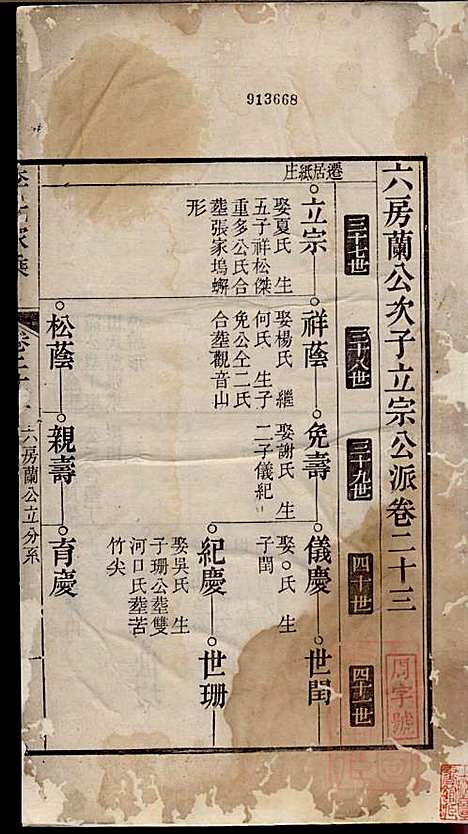 913668
六房蘭公次子立宗公派卷二十三
三十七世
三十八世
三十九世
四十世
四十一世
遷居紙庄
立宗
娶夏氏 生
五子祥松傑
重多公氏合
塟張家塢蠏
形
祥蔭
娶楊氏 繼
何氏 生子
免公仝二氏
合塟觀音山
免壽
娶謝氏 生
二子儀紀
儀慶
娶○氏 生
子閏
世閏
紀慶
娶吳氏 生
子珊公塟雙
河口氏塟苦
竹尖
世珊
松蔭
親壽
育慶
家乘
六房蘭公立分系
周字號